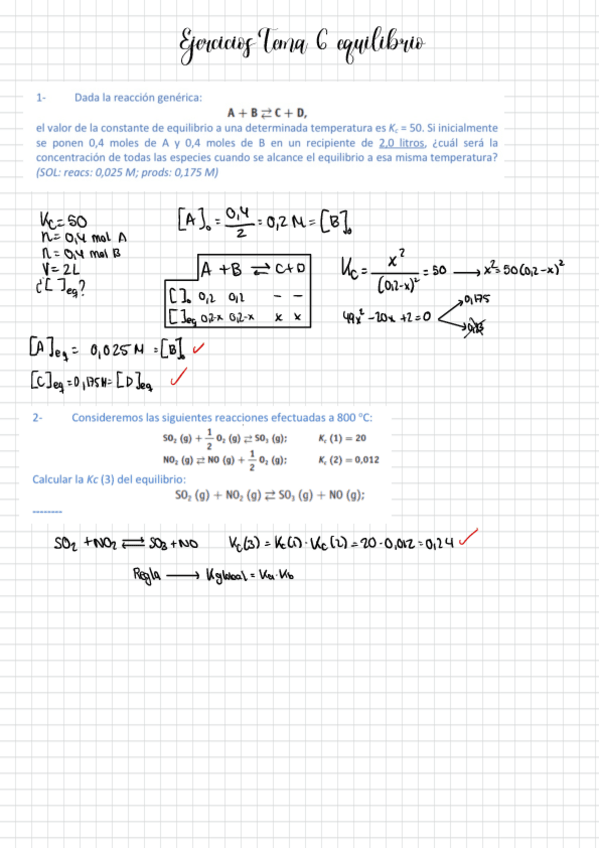 Ejercicios Tema 6 equilibrio
1- Dada la reacción genérica:
A + B ⇄ C + D,
el valor de la constante de equilibrio a una determinada temperatura es Kc = 50. Si inicialmente
se ponen 0,4 moles de A y 0,4 moles de B en un recipiente de 2,0 litros, ¿cuál será la
concentración de todas las especies cuando se alcance el equilibrio a esa misma temperatura?
(SOL: reacs: 0,025 M; prods: 0,175 M)
Kc = 50
n = 0,4 mol A
n = 0,4 mol B
V = 2L
¿[ ]eq?
[A]₀ = 0,4/2 = 0,2 M = [B]₀
A + B ⇄ C+D
[ ]₀ 0,2 0,2 – –
[ ]eq 0,2-x 0,2-x x x
Kc = x²/(0,2-x)² = 50 → x² = 50(0,2-x)²
49x² - 20x + 2 = 0
0,175
[A]eq = 0,025 M = [B]₀ ✓
[C]eq = 0,175 M = [D]eq ✓
2- Consideremos las siguientes reacciones efectuadas a 800 °C:
SO₂ (g) + 1/2 O₂ (g) ⇄ SO₃ (g): Kc (1) = 20
NO₂ (g) ⇄ NO (g) + 1/2 O₂ (g): Kc (2) = 0,012
Calcular la Kc (3) del equilibrio:
SO₂ (g) + NO₂ (g) ⇄ SO₃ (g) + NO (g):
--------
SO₂ + NO₂ ⇄ SO₃ + NO Kc(3) = Kc(1) · Kc(2) = 20 · 0,012 = 0,24 ✓
Regla → Kglobal = Ka · Kb